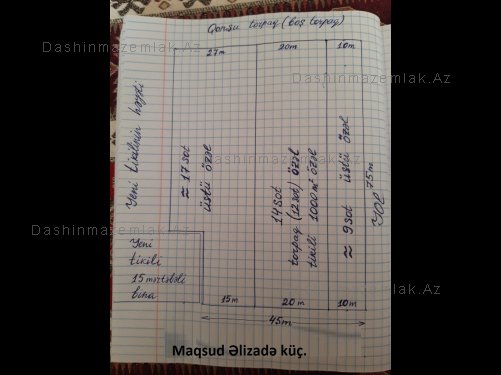 Qonşu torpaq (boş torpaq)
27m
20m
10m
Yeni tikilinin həyəti
≈ 17 sot
üstü özəl
14 sot
torpaq (12 sot) özəl
tikili 1000 m² özəl
≈ 9 sot üstü özəl
75m
YOL
Yeni
tikili
15 mərtəbəli
bina
15m
20m
10m
45m
Maqsud Əlizadə küç.
Dashinmazemlak.Az
Dashinmazemlak.Az
Dashinmazemlak.Az
Dashinmazemlak.Az
Dashinmazemlak.Az